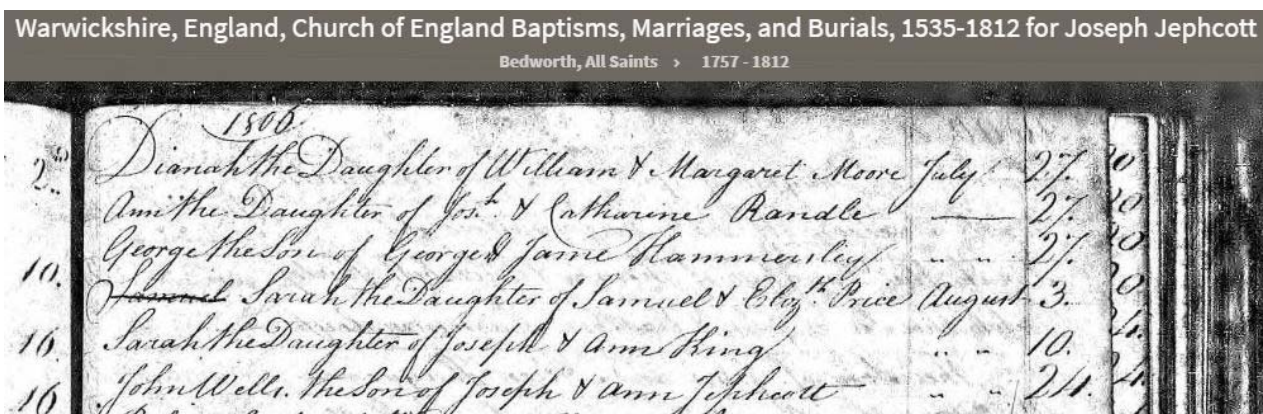 Warwickshire, England, Church of England Baptisms, Marriages, and Burials, 1535-1812 for Joseph Jephcott
Bedworth, All Saints › 1757 - 1812
1806
Dianah the Daughter of William & Margaret Moore July 27.
Ann the Daughter of Josh. & Catharine Randle — 27.
George the Son of George & Jane Hammersley " " 27.
10. Samuel Sarah the Daughter of Samuel & Elizth. Price August 3.
16. Sarah the Daughter of Joseph & Ann King " " 10.
16 John Wells. the Son of Joseph & Ann Jephcott " " 24.